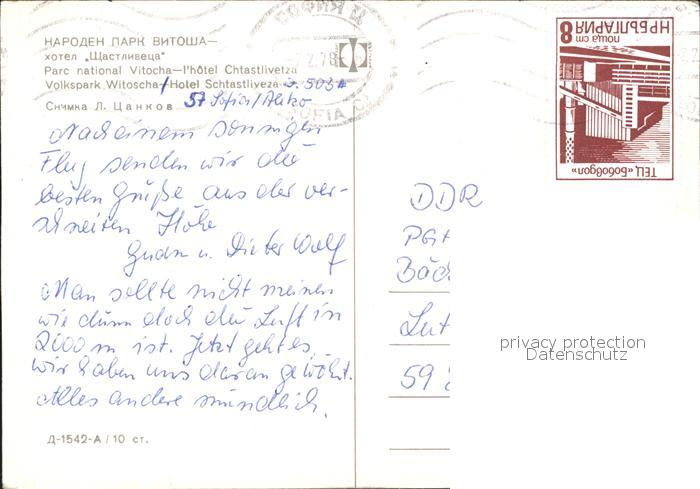 НАРОДЕН ПАРК ВИТОША—
хотел „Щастливеца"
Parc national Vitocha—l'hôtel Chtastlivetza
Volkspark Witoscha/Hotel Schtastliveza
Снимка Л. Цанков 57 Sofia/Aleko
Nach einem sonnigen
Flug senden wir die
besten Grüße aus der ver-
schneiten Höhe
Gudrun u. Dieter Wolf
Man sollte nicht meinen
wie dünn doch die Luft in
2000 m ist. Jetzt geht es
wir haben uns daran gewöhnt.
Alles andere mündlich.
Д-1542-А / 10 ст.
СОФИЯ Ц
SOFIA C
НР БЪЛГАРИЯ
поща ст 8
ТЕЦ «Бобовдол»
DDR
PGH
Bäc
Lut
59
privacy protection
Datenschutz